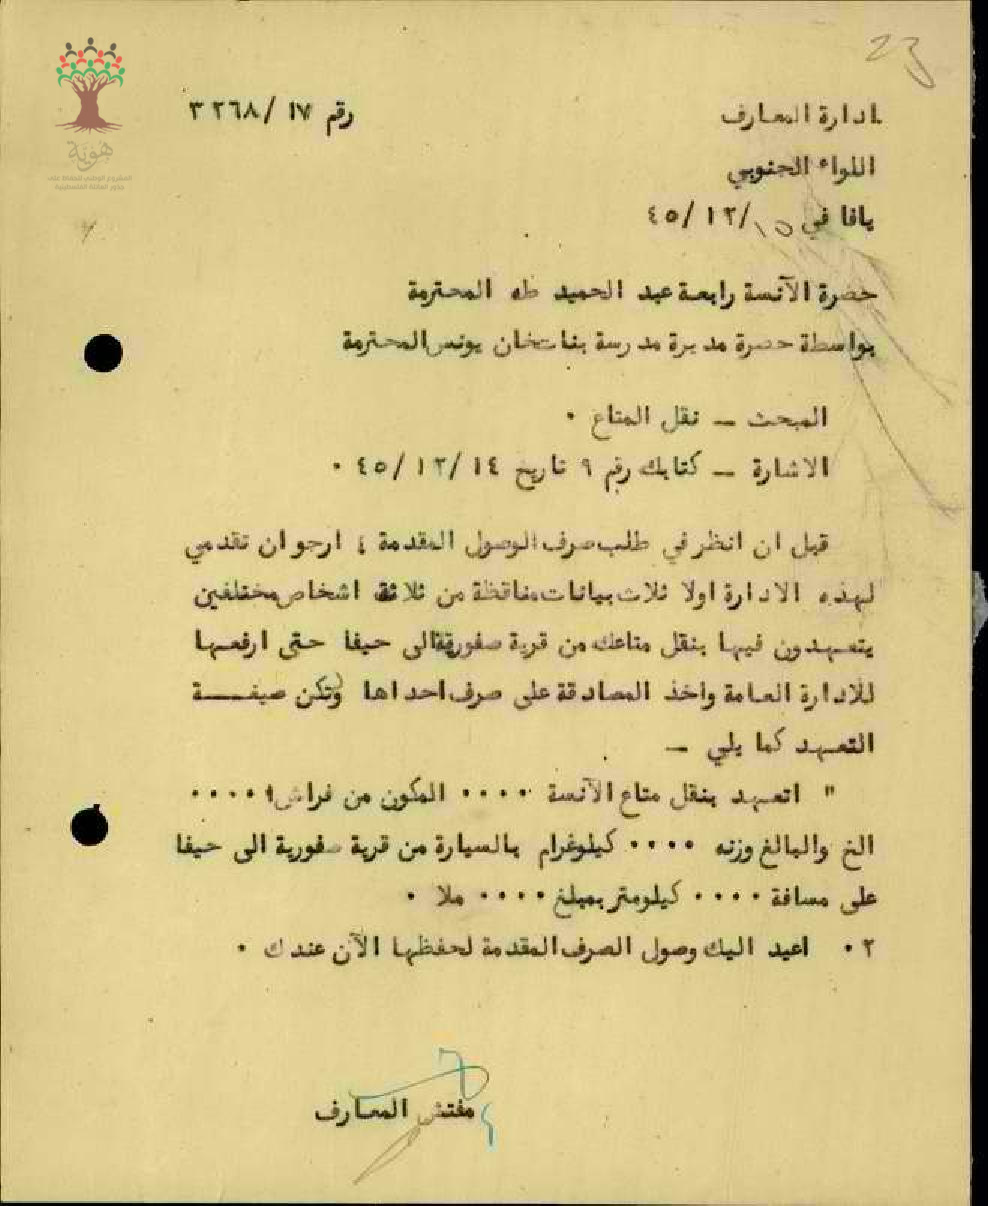 23
هوية
ادارة المعارف
رقم ١٧ /٣٢٦٨
اللواء الجنوبي
يافا في ١٥/١٢/٤٥
حضرة الآنسة رابعة عبد الحميد طه المحترمة
بواسطة حضرة مديرة مدرسة بنات خان يونس المحترمة
المبحث — نقل المتاع ٠
الاشارة — كتابك رقم ٩ تاريخ ١٤/١٢/٤٥ ٠
قبل ان انظر في طلب صرف الوصول المقدمة ، ارجو ان تقدمي
لهذه الادارة اولا ثلاث بيانات مناقظة من ثلاثة اشخاص مختلفين
يتعهدون فيها بنقل متاعك من قرية صفورية الى حيفا حتى ارفعها
للادارة العامة واخذ المصادقة على صرف احداها ولتكن صيغة
التعهد كما يلي —
" اتعهد بنقل متاع الآنسة ٠٠٠٠ المكون من فراش، ٠٠٠٠
الخ والبالغ وزنه ٠٠٠٠ كيلوغرام بالسيارة من قرية صفورية الى حيفا
على مسافة ٠٠٠٠ كيلومتر بمبلغ ٠٠٠٠ ملا ٠
٢٠ اعيد اليك وصول الصرف المقدمة لحفظها الآن عندك ٠
مفتش المعارف